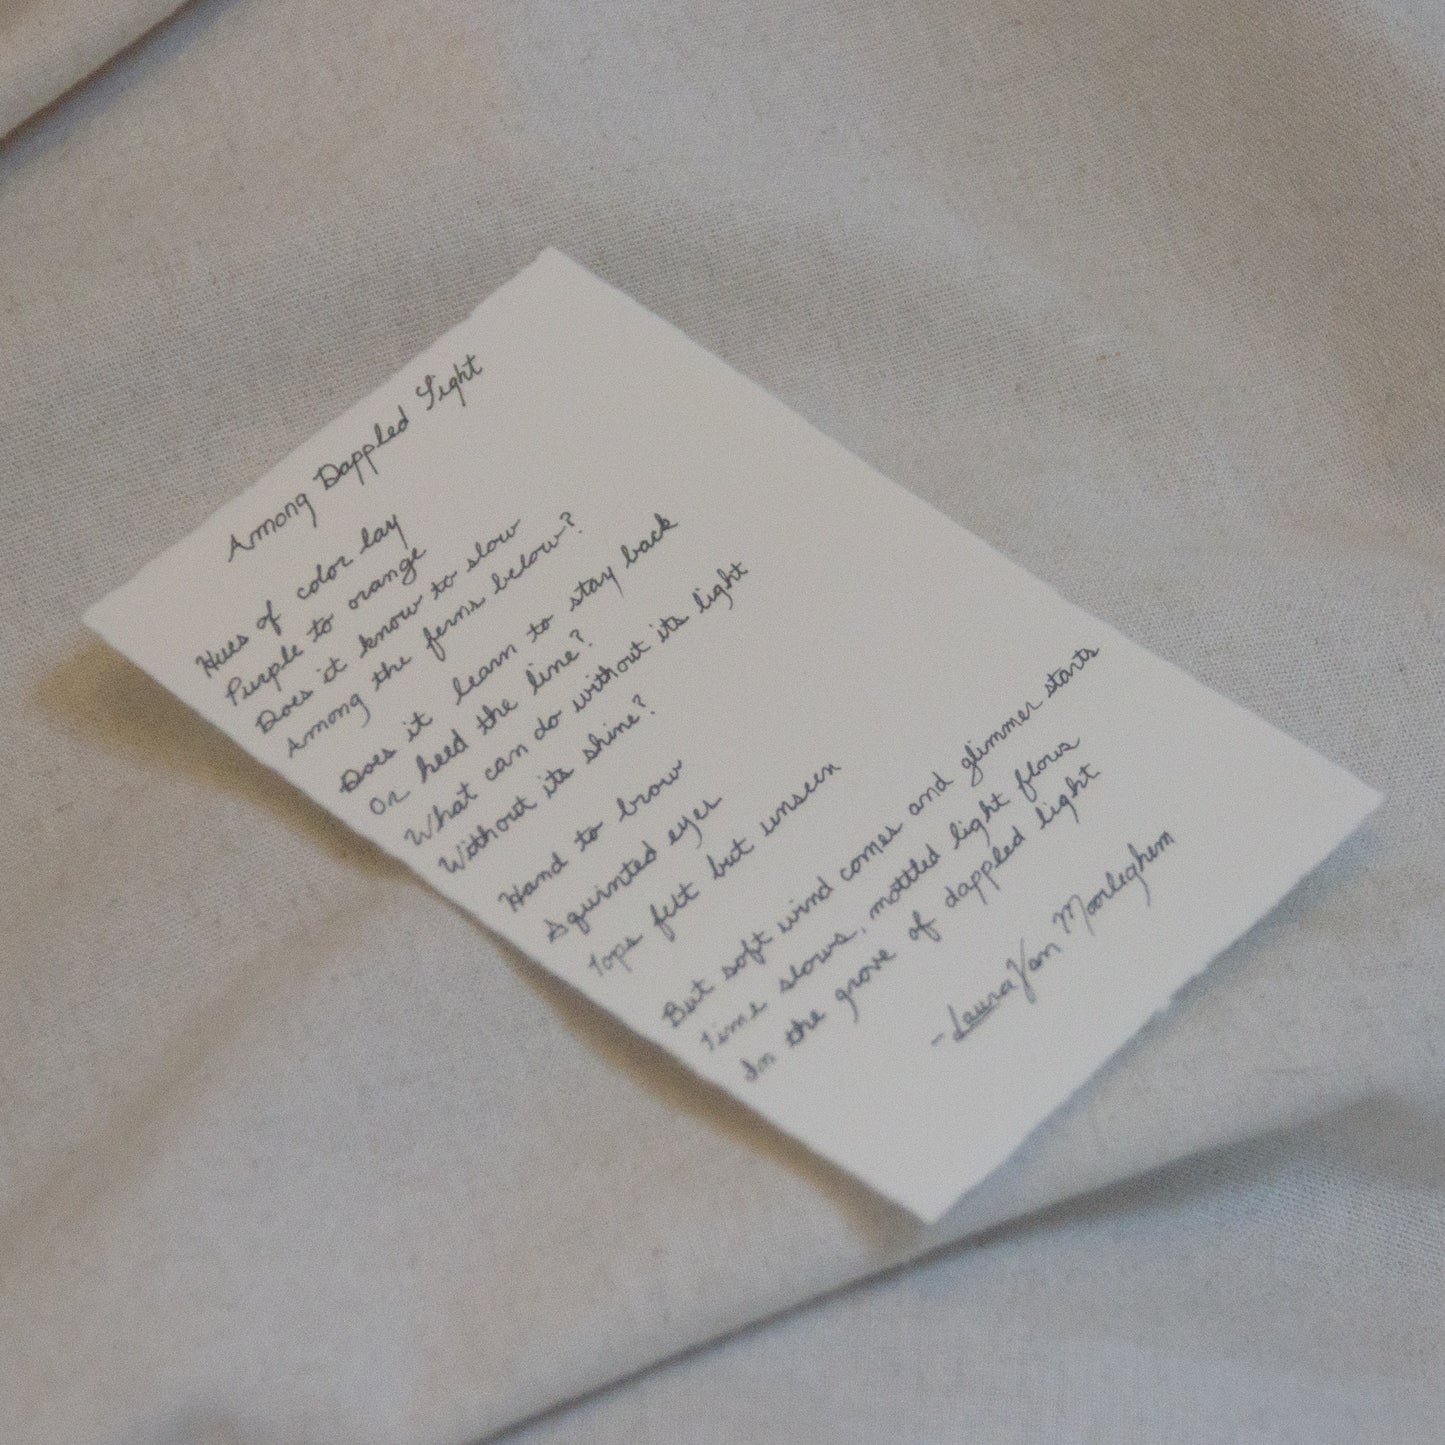 Among Dappled Light
Hues of color lay
Purple to orange
Does it know to slow
Among the ferns below?
Does it learn to stay back
Or heed the line?
What can do without its light
Without its shine?
Hand to brow
Squinted eyes
Tops felt but unseen
But soft wind comes and glimmer starts
Time slows, mottled light flows
In the grove of dappled light
- Laura Van Moorleghem